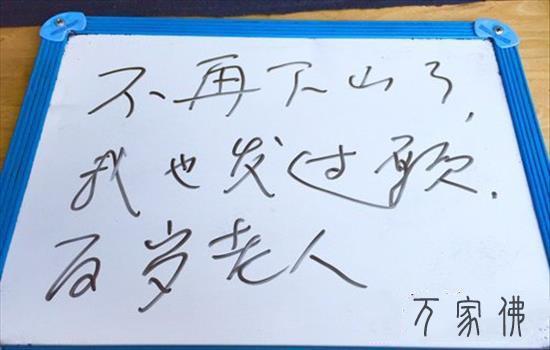 不再下山了,
我也发过愿.
百岁老人
万家佛